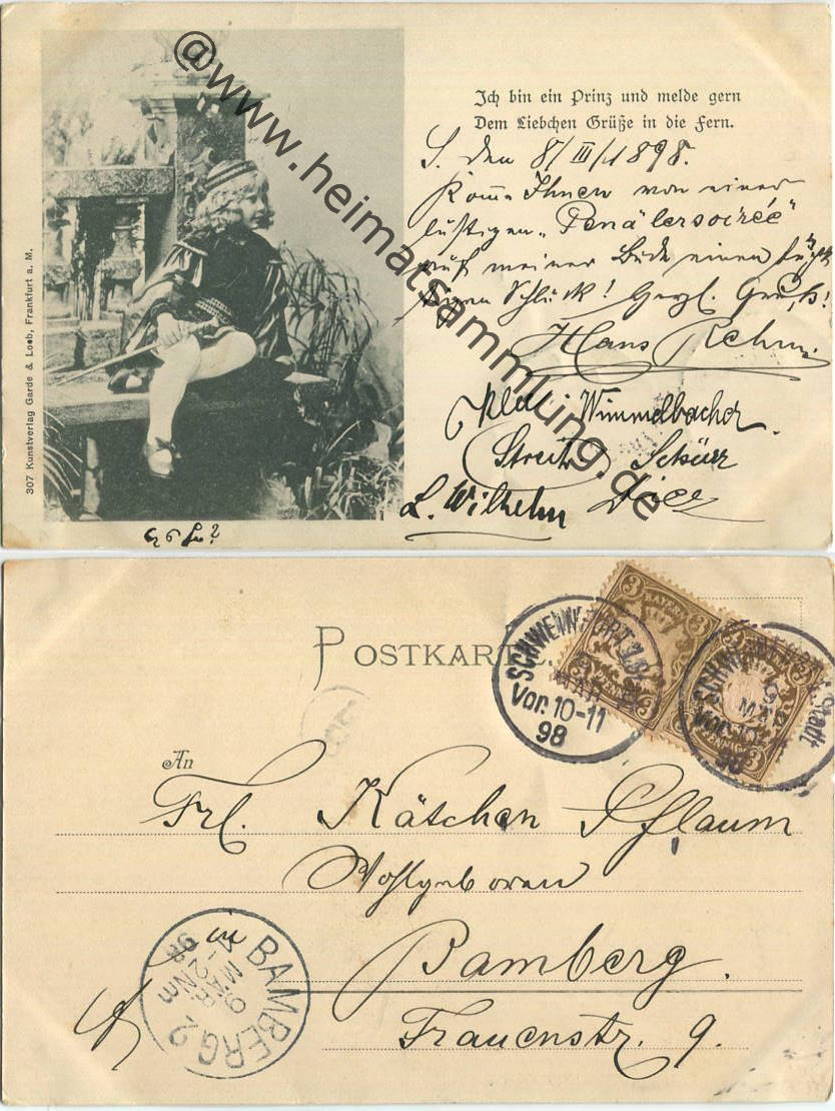 @www.heimatsammlung.de
307 Kunstverlag Garde & Loeb, Frankfurt a. M.
Ich bin ein Prinz und melde gern
Dem Liebchen Grüße in die Fern.
S. den 8/III/1898.
Komme Ihnen von einer
lustigen „Penälersoirée“
auf meiner Bude einen
Schluck! Herzl. Gruß!
Hans Rehm
Wimmelbacher
Streit Schürr
L. Wilhelm
POSTKARTE.
SCHWEINFURT
MÄR
Vor. 10-11
98
SCHWEINFURT Stadt
9
MÄR
Vor. 10-11
98
3
BAYERN
3
PFENNIG
An
Frl. Kätchen Pflaum
Wohlgeboren
in
Bamberg.
Frauenstr. 9.
BAMBERG 2
9
MÄR
1-2 Nm
98